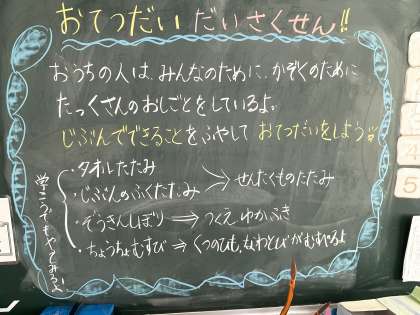 おてつだい だいさくせん!!
おうちの人は、みんなのために、かぞくのために
たっくさんのおしごとをしているよ。
じぶんでできることをふやして おてつだいをしよう!!
・タオルたたみ
・じぶんのふくたたみ
→ せんたくものたたみ
・ぞうきんしぼり ⇒ つくえ ゆかふき
・ちょうちょむすび ⇒ くつのひも、なわとびがむすべるよ
学こうでもやってみるよ
5